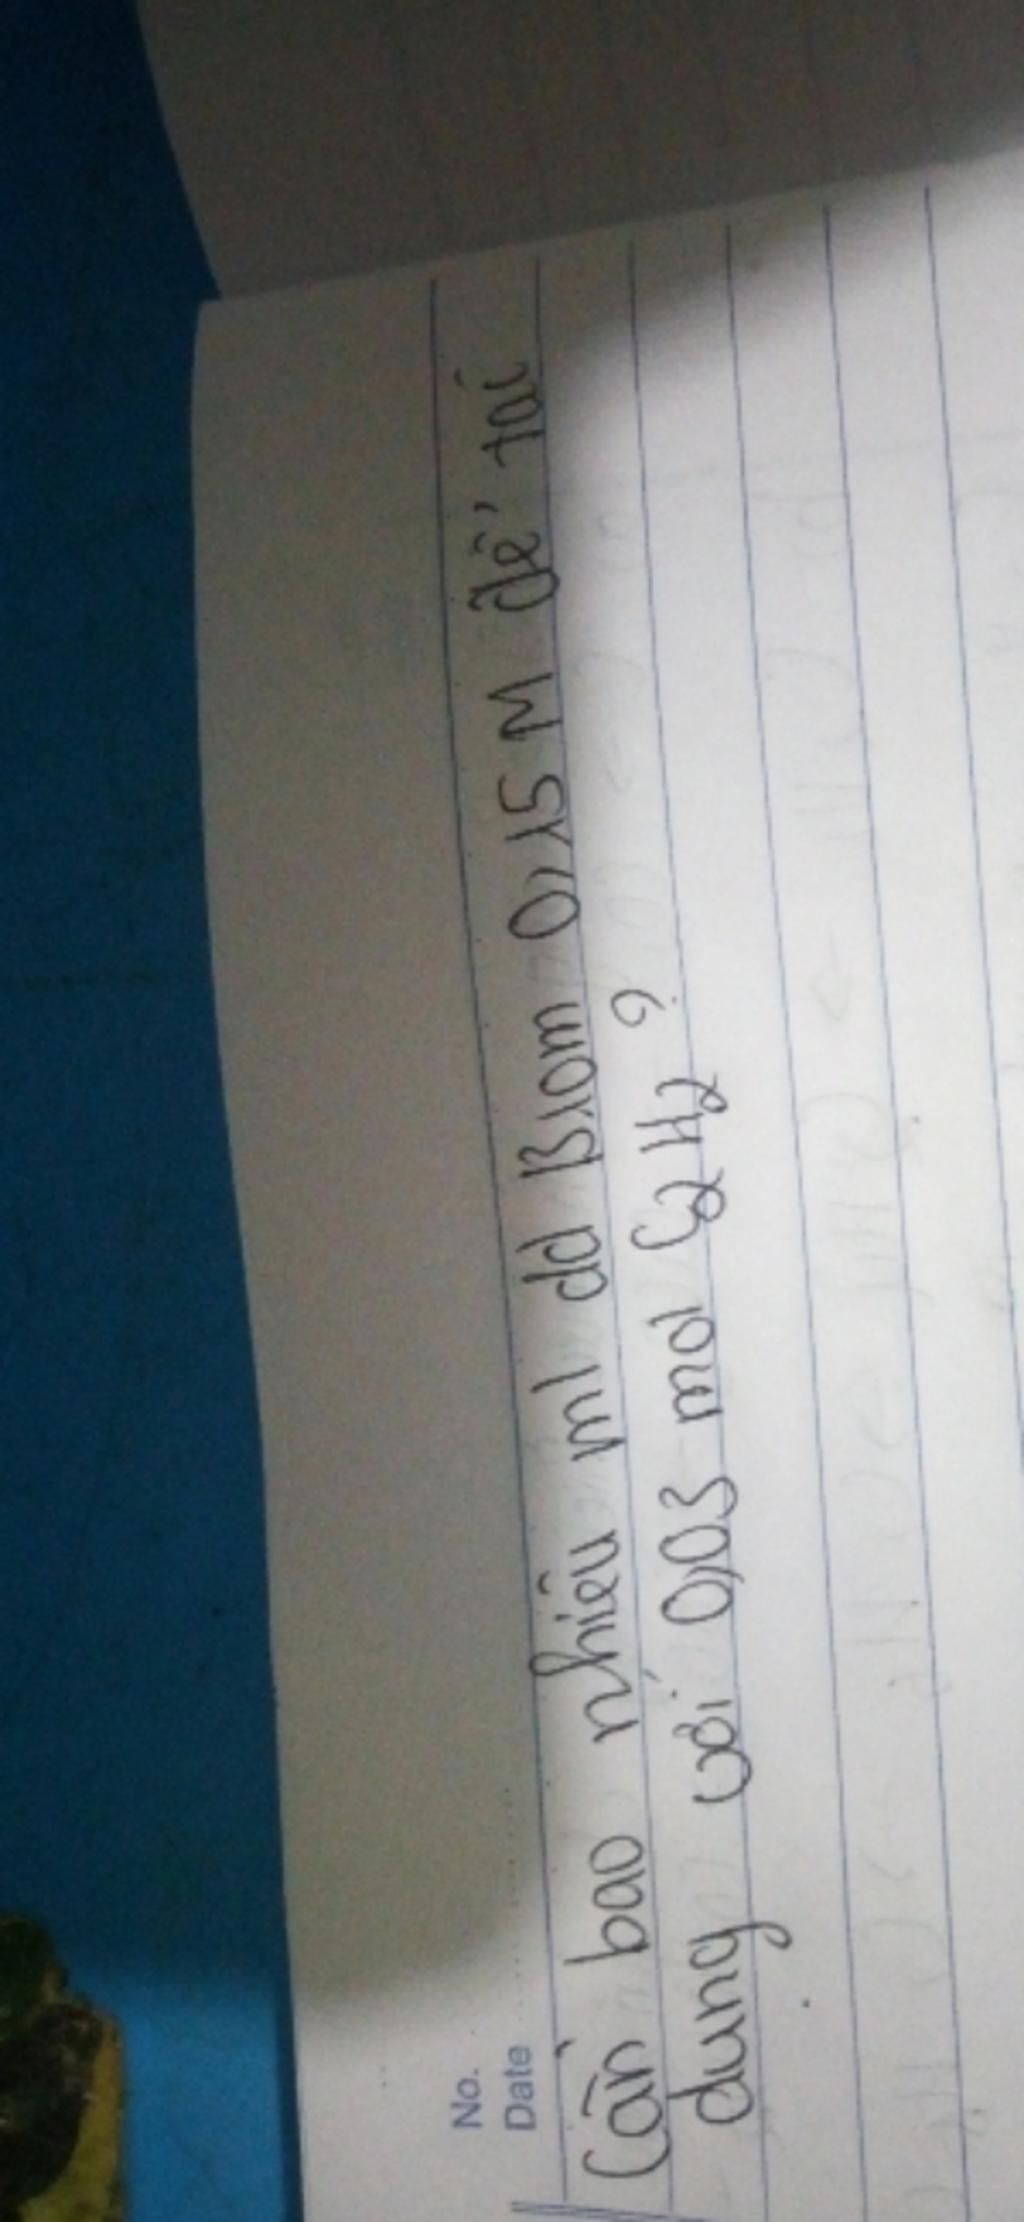 No.
Date
Cần bao nhiêu ml dd Brom 0,15 M để tác
dụng với 0,03 mol C2H2 ?